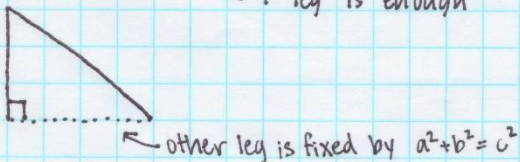 leg is enough
other leg is fixed by a²+b²=c²